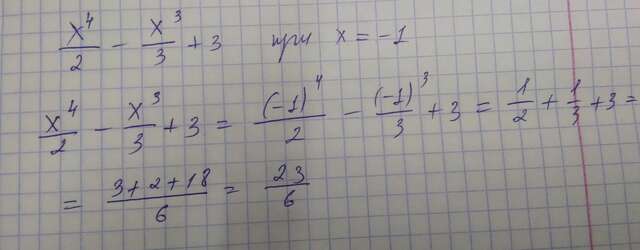 x⁴/2 − x³/3 + 3 при x = −1
x⁴/2 − x³/3 + 3 = (−1)⁴/2 − (−1)³/3 + 3 = 1/2 + 1/3 + 3 =
= (3+2+18)/6 = 23/6